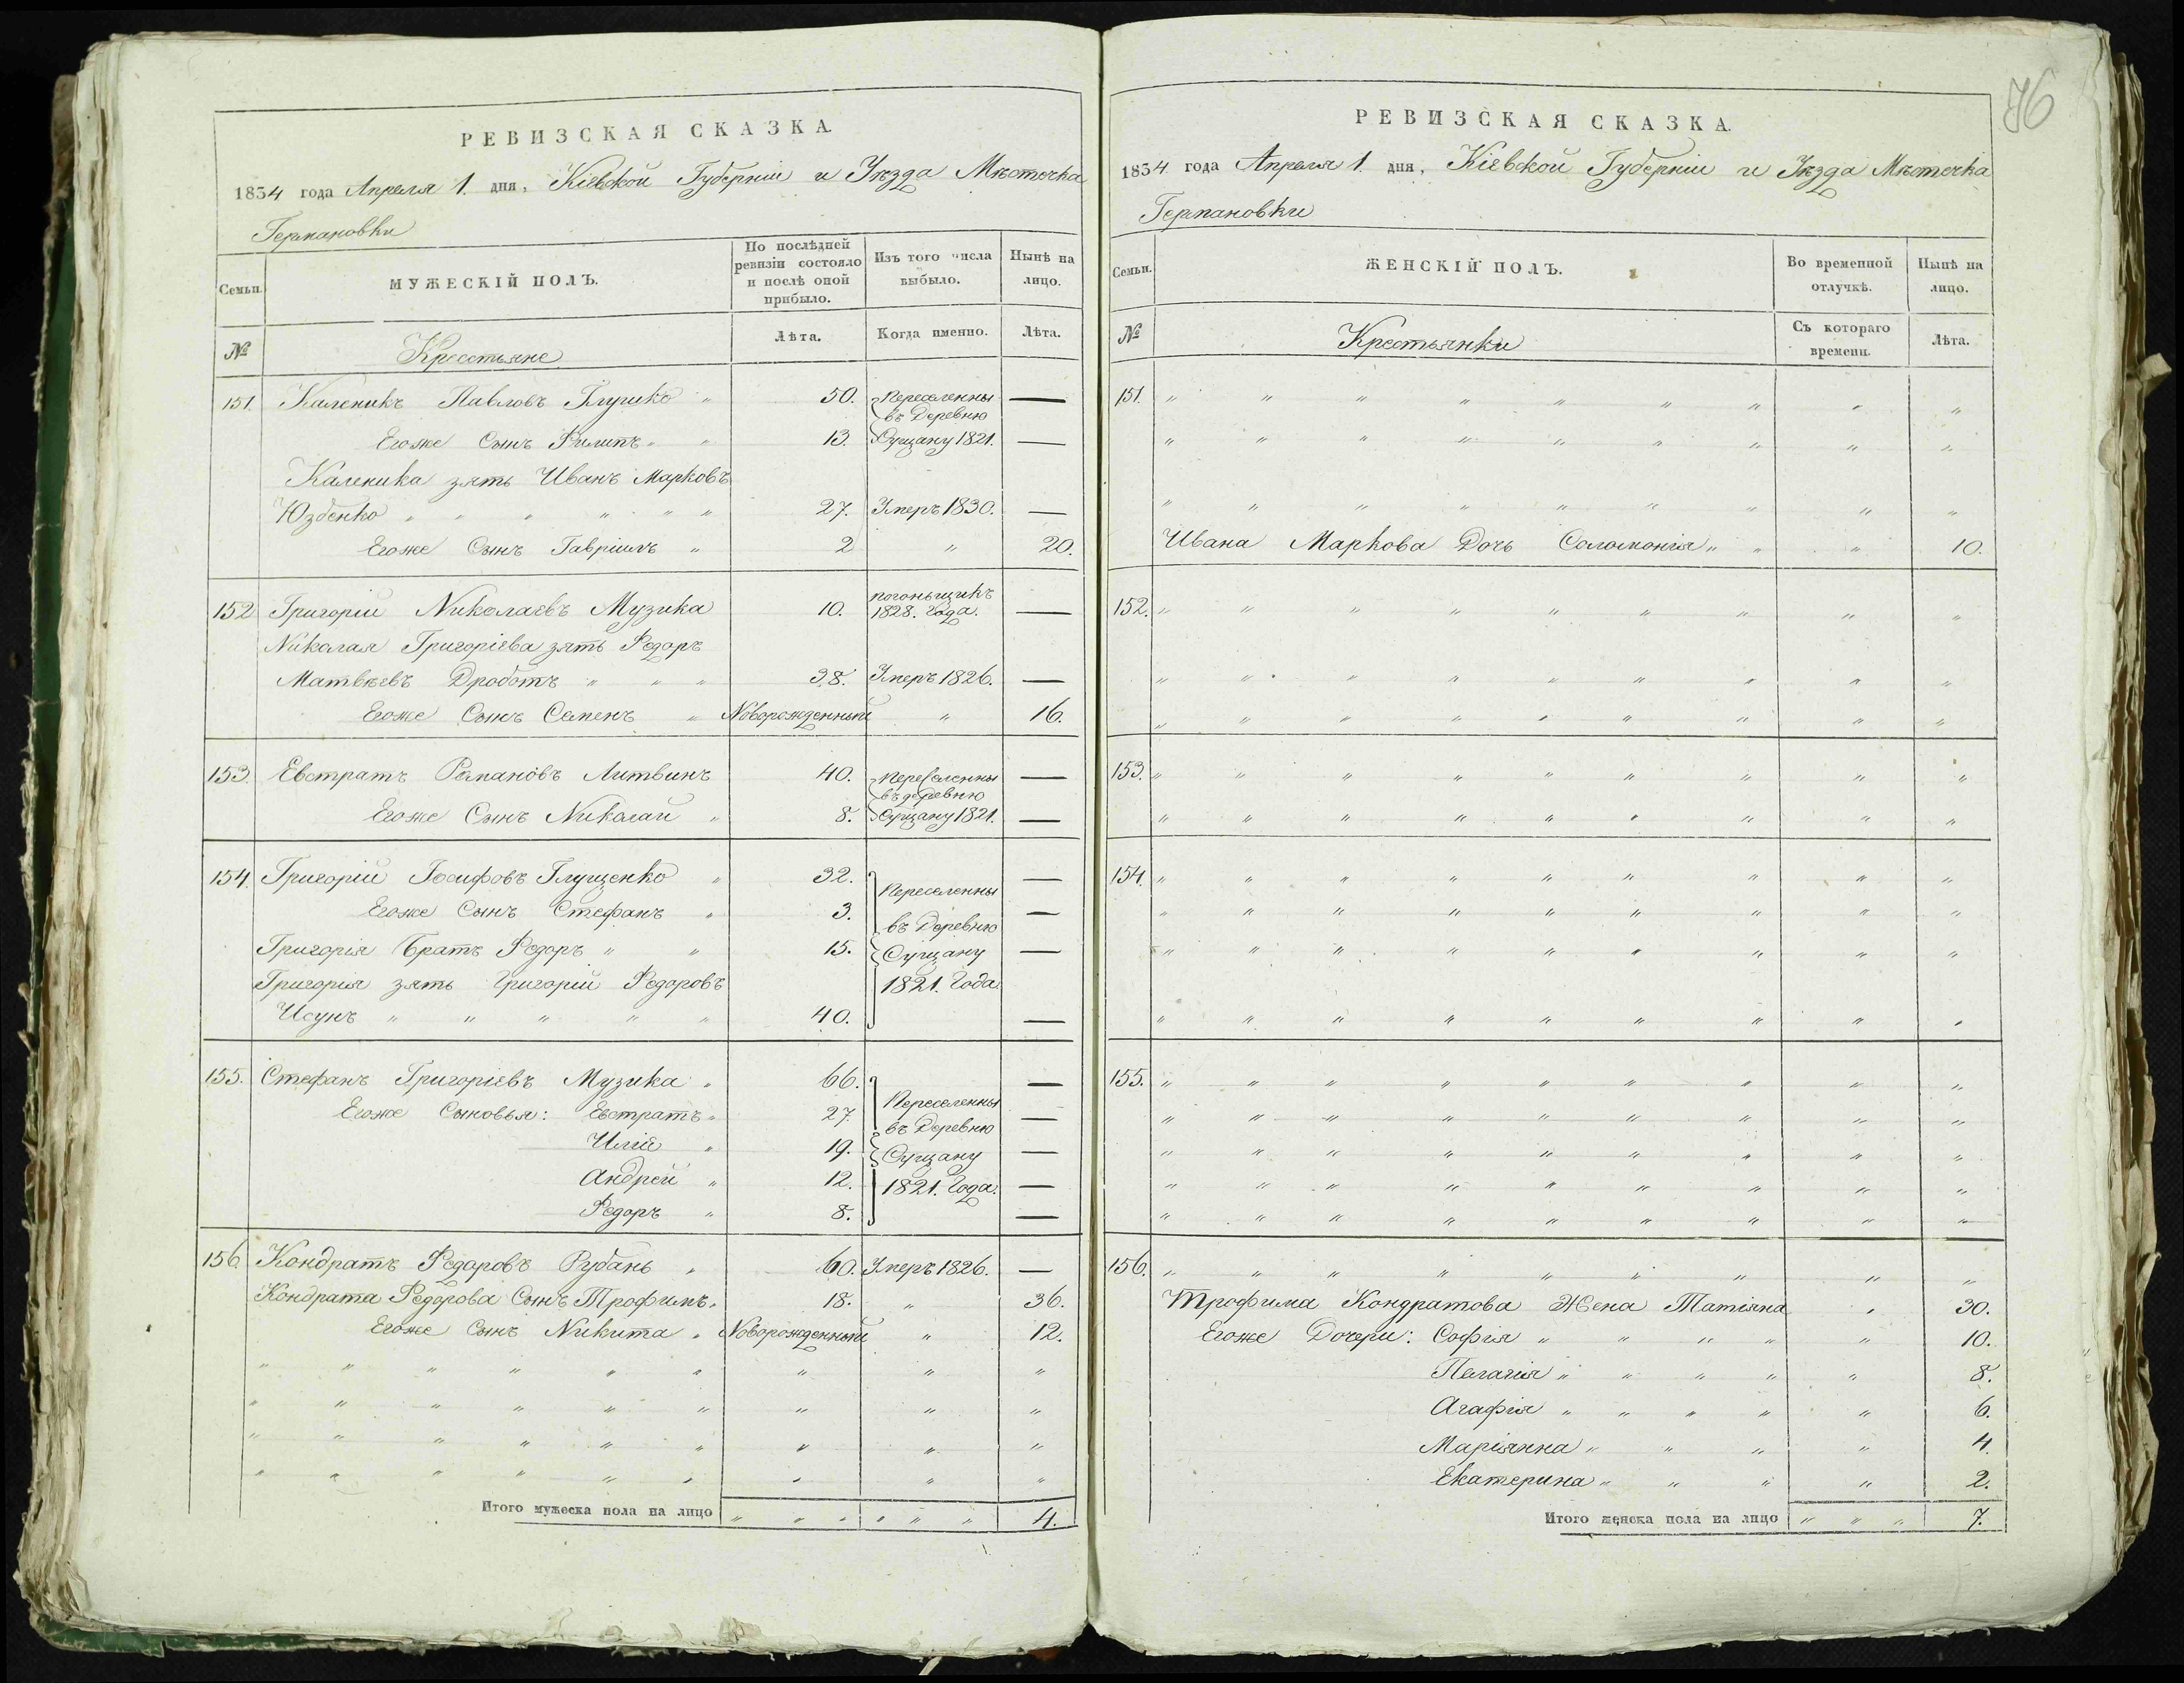 76
РЕВИЗСКАЯ СКАЗКА.
1834 года Апреля 1. дня, Кіевской Губерніи и Уѣзда Мѣстечка
Германовки
Семьи. МУЖЕСКІЙ ПОЛЪ. По послѣдней ревизіи состояло и послѣ оной прибыло. Изъ того числа выбыло. Нынѣ на лицо.
№ Крестьяне Лѣта. Когда именно. Лѣта.
151. Каленикъ Павловъ Глушко " 50. Переселенны —
въ Деревню
Егоже Сынъ Филипъ " " 13. Сущану 1821. —
Каленика зять Иванъ Марковъ
Юзбенко " " " " " " 27. Умеръ 1830. —
Егоже Сынъ Гавріилъ " 2 " 20.
152 Григорій Николаевъ Музика 10. погоньщикъ
1828. Года. —
Николая Григоріева зять Федоръ
Матвѣевъ Дроботъ " " " 38. Умеръ 1826. —
Егоже Сынъ Семенъ " Новорожденный " 16.
153. Евстратъ Романовъ Литвинъ 40. Переселенны —
въ деревню
Егоже Сынъ Николай " 8. Сущану 1821. —
154. Григорій Іосифовъ Глущенко " 32. Переселенны —
Егоже Сынъ Стефанъ " 3. въ Деревню —
Григорія Братъ Федоръ " " 15. Сущану —
Григорія зять Григорій Федоровъ 1821. Года
Исунъ " " " " " 40. —
155. Стефанъ Григоріевъ Музика " 66. Переселенны —
Егоже Сыновья: Евстратъ " 27. въ Деревню —
Илій " 19. Сущану —
Андрей " 12. 1821. Года. —
Федоръ " 8. —
156. Кондратъ Федоровъ Рубань " 60. Умеръ 1826. —
Кондрата Федорова Сынъ Трофимъ " 18. " 36.
Егоже Сынъ Никита " Новорожденный " 12.
" " " " " " " " "
" " " " " " " " "
" " " " " " " " "
" " " " " " " " "
Итого мужеска пола на лицо " " " " " " 4.
РЕВИЗСКАЯ СКАЗКА.
1834 года Апреля 1. дня, Кіевской Губерніи и Уѣзда Мѣстечка
Германовки
Семьи. ЖЕНСКІЙ ПОЛЪ. Во временной отлучкѣ. Нынѣ на лицо.
№ Крестьянки Съ котораго времени. Лѣта.
151. " " " " " " " " "
" " " " " " " " "
" " " " " " " " "
Ивана Маркова Дочь Соломонія " " " 10.
152. " " " " " " " " "
" " " " " " " " "
" " " " " " " " "
153. " " " " " " " " "
" " " " " " " " "
154. " " " " " " " " "
" " " " " " " " "
" " " " " " " " "
" " " " " " " " "
155. " " " " " " " " "
" " " " " " " " "
" " " " " " " " "
" " " " " " " " "
" " " " " " " " "
156. " " " " " " " " "
Трофима Кондратова Жена Татіяна " 30.
Егоже Дочери: Софія " " " " " 10.
Пелагія " " " " " 8.
Агафія " " " " " 6.
Маріянна " " " " 4.
Екатерина " " " " 2.
Итого женска пола на лицо " " " 7.